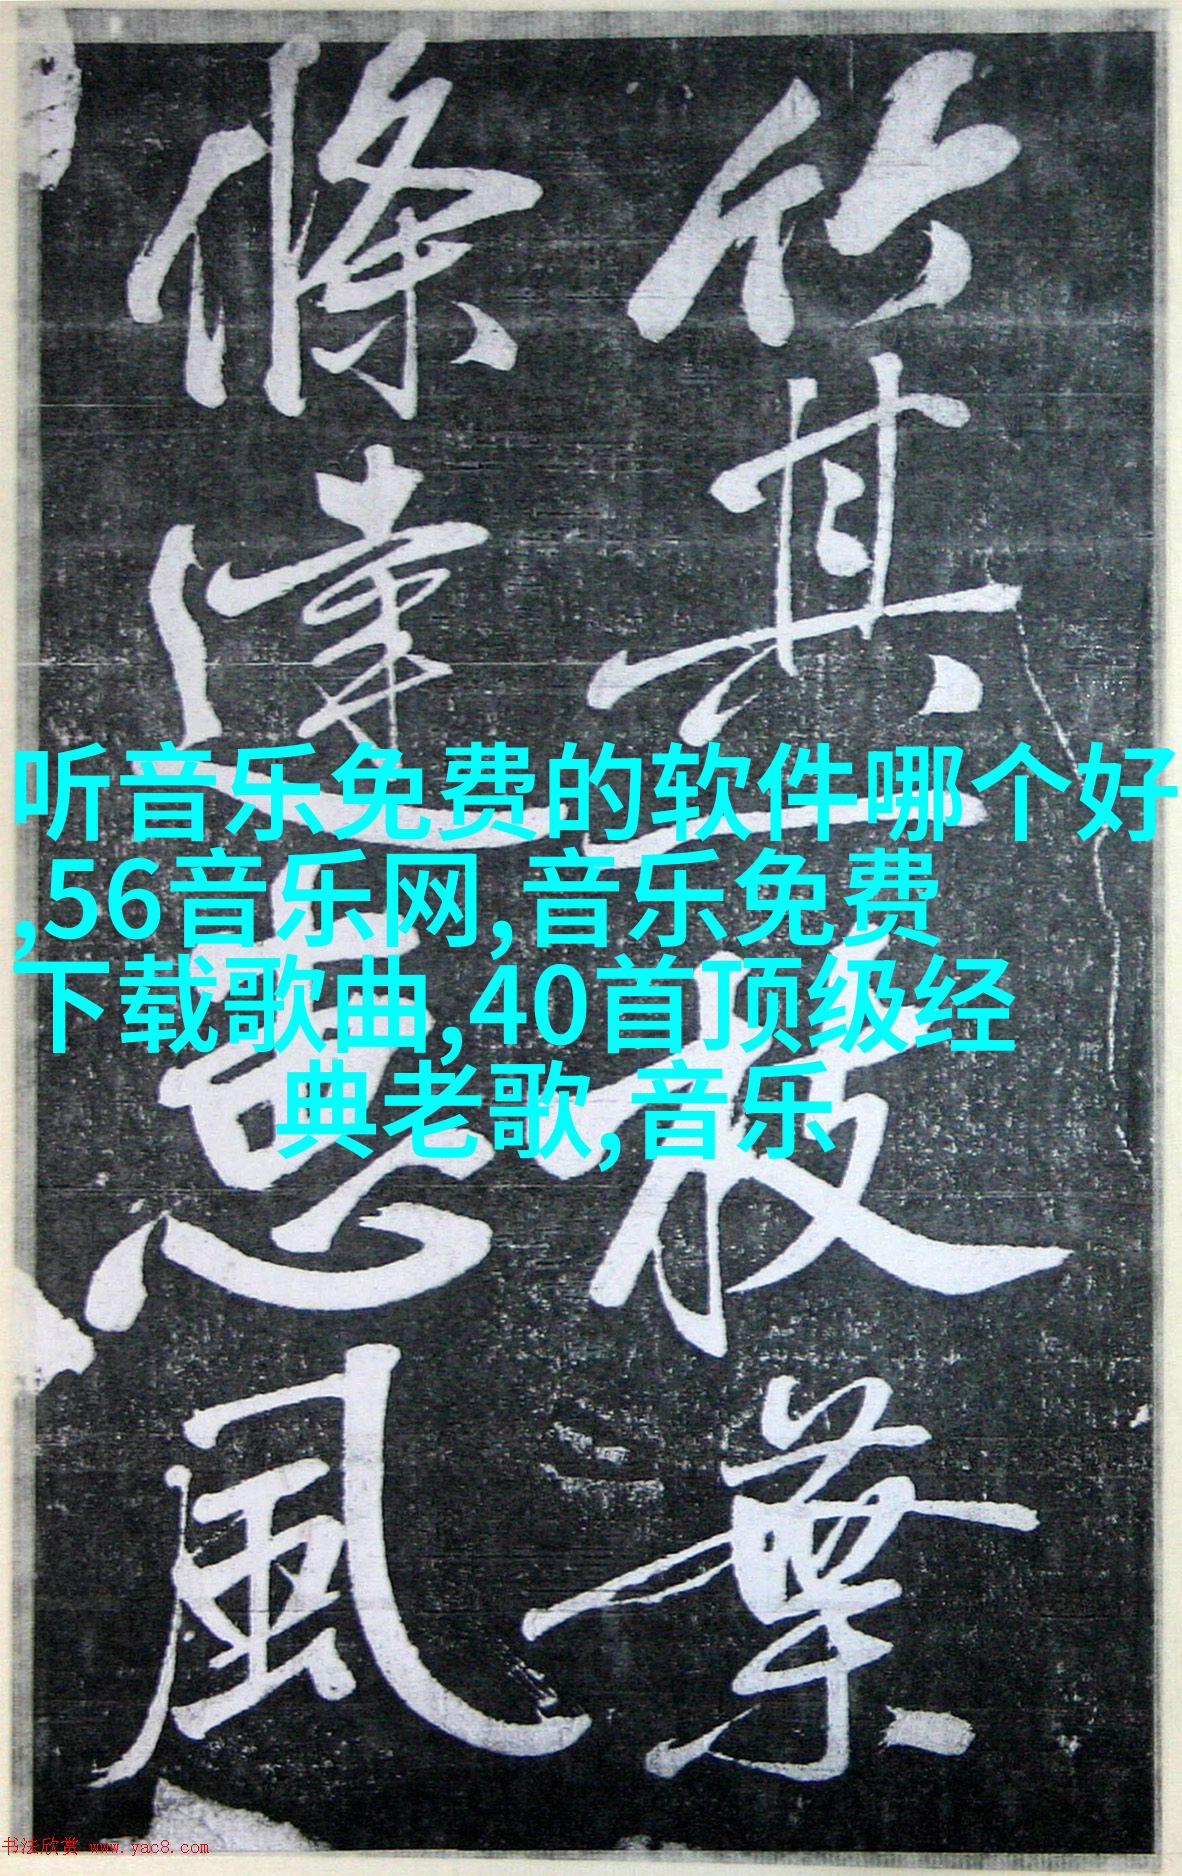 竹其一枝葉
條達惠風
听音乐免费的软件哪个好
,56音乐网,音乐免费
下载歌曲,40首顶级经
典老歌,音乐
书法欣赏 www.yac8.com